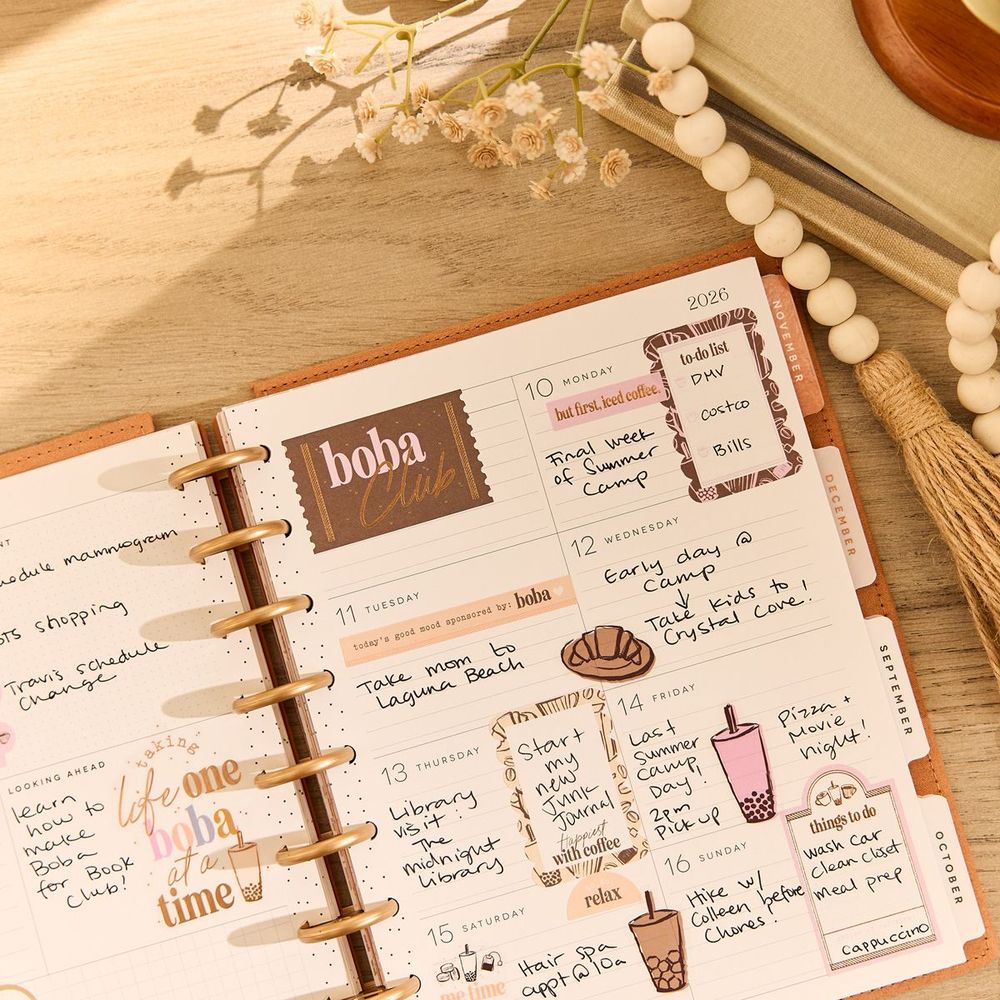 2026
NOVEMBER
DECEMBER
SEPTEMBER
OCTOBER
mammogram
shopping
Travis schedule
Change
LOOKING AHEAD
learn
how to
make
Boba
for Book
Club!
taking
life one
boba
at a
time
boba
Club
10 MONDAY
but first, iced coffee.
Final week
of Summer
Camp
to-do list
DMV
Costco
Bills
11 TUESDAY
today's good mood sponsored by: boba
Take mom to
Laguna Beach
12 WEDNESDAY
Early day @
Camp
Take Kids to
Crystal Cove!
13 THURSDAY
Library
visit!
The
midnight
library
Start
my
new
Junk
Journal
Happiest
with coffee
14 FRIDAY
Last
Summer
Camp
Day!
2pm
Pick up
Pizza +
Movie
night!
15 SATURDAY
me time
relax
Hair spa
appt @ 10a
16 SUNDAY
Hike w/
Colleen before
Chores!
things to do
wash car
clean closet
meal prep
cappuccino